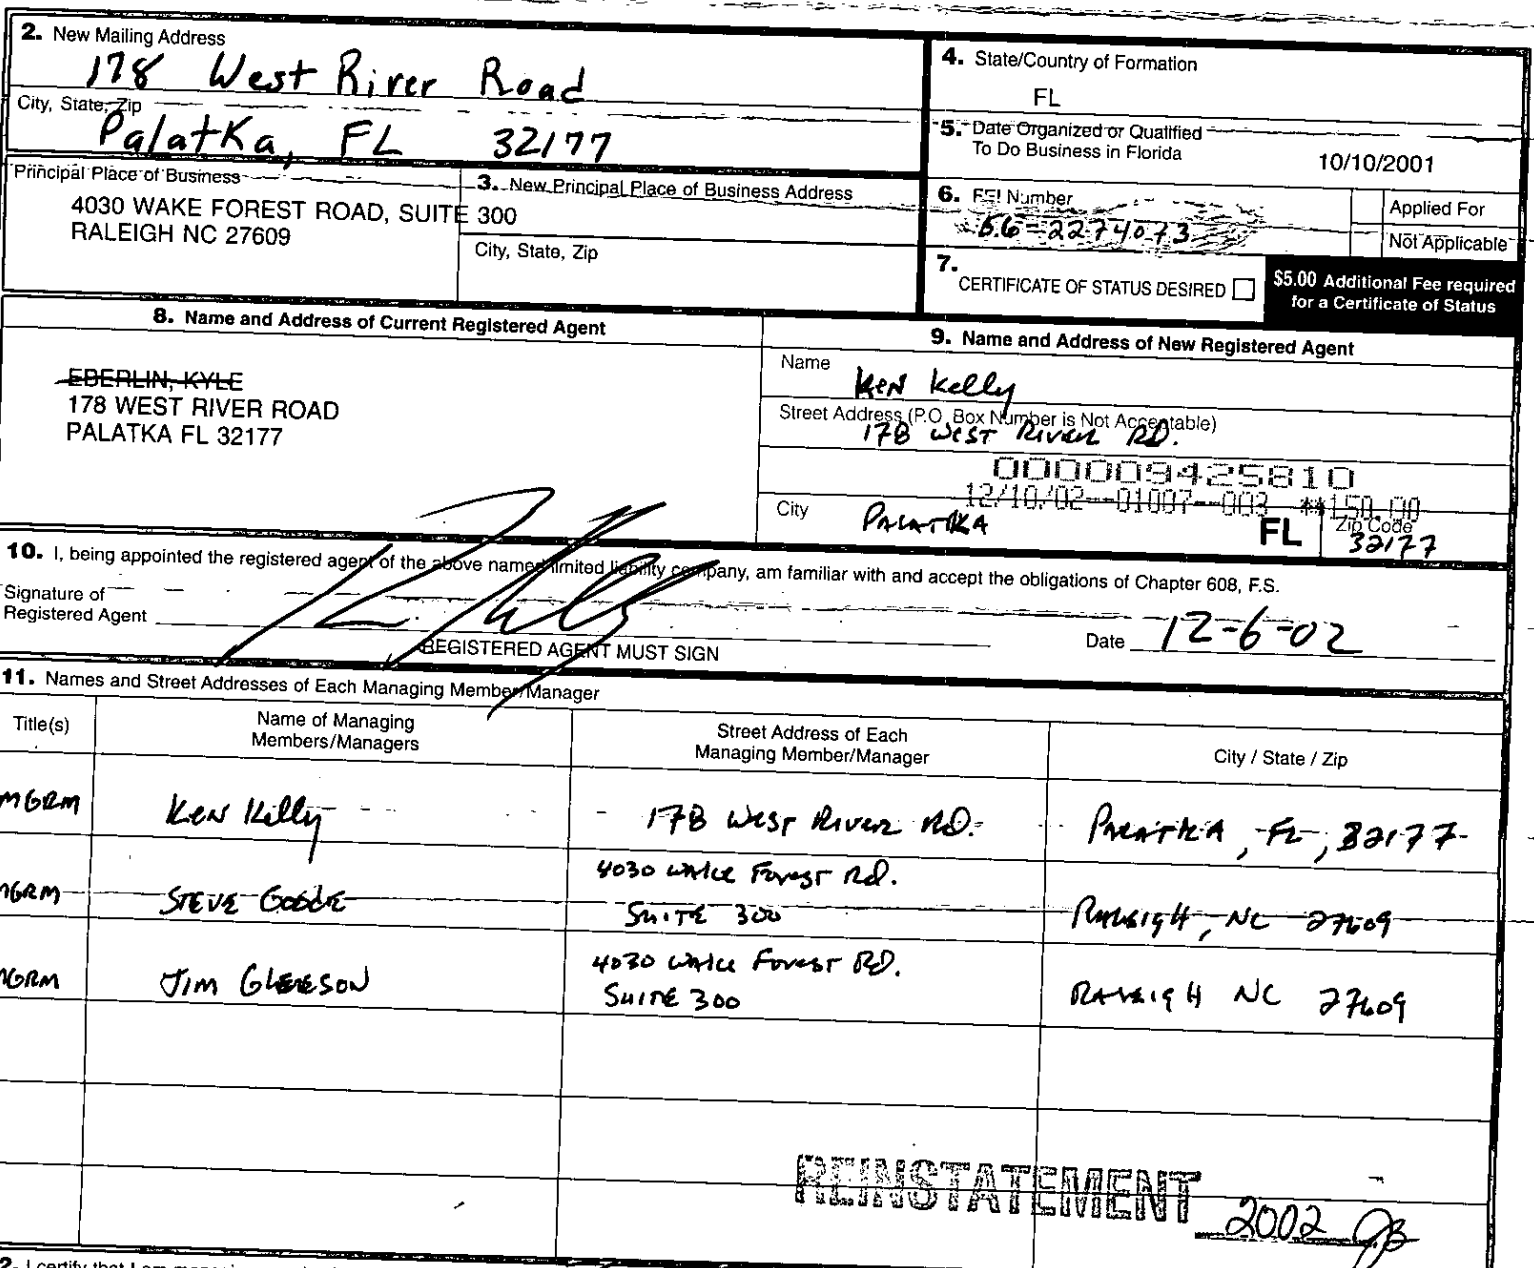 2. New Mailing Address
178 West River Road
City, State, Zip
Palatka, FL 32177
4. State/Country of Formation
FL
5. Date Organized or Qualified
To Do Business in Florida
10/10/2001
Principal Place of Business
4030 WAKE FOREST ROAD, SUITE 300
RALEIGH NC 27609
3. New Principal Place of Business Address
City, State, Zip
6. FEI Number
56-2274073
Applied For
Not Applicable
7.
CERTIFICATE OF STATUS DESIRED
$5.00 Additional Fee required
for a Certificate of Status
8. Name and Address of Current Registered Agent
EBERLIN, KYLE
178 WEST RIVER ROAD
PALATKA FL 32177
9. Name and Address of New Registered Agent
Name
Ken Kelly
Street Address (P.O. Box Number is Not Acceptable)
178 West River RD.
000009425810
12/10/02--01007--003 **150.00
City
PALATKA
FL
Zip Code
32177
10. I, being appointed the registered agent of the above named limited liability company, am familiar with and accept the obligations of Chapter 608, F.S.
Signature of
Registered Agent
REGISTERED AGENT MUST SIGN
Date 12-6-02
11. Names and Street Addresses of Each Managing Member/Manager
Title(s)
Name of Managing
Members/Managers
Street Address of Each
Managing Member/Manager
City / State / Zip
MGRM Ken Kelly 178 West River RD. PALATKA, FL, 32177
4030 Wake Forest Rd.
MGRM STEVE GOODE SUITE 300 RALEIGH, NC 27609
4030 Wake Forest RD.
MGRM JIM GLEESON SUITE 300 RALEIGH NC 27609
REINSTATEMENT 2002 JB